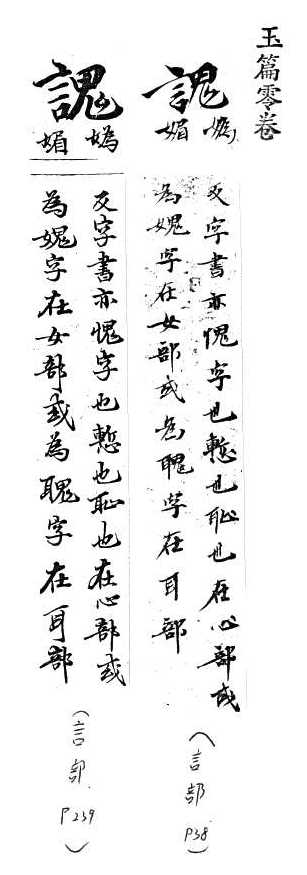 玉篇零卷
謉
媿
媚
反字書亦愧字也慙也恥也在心部或
為媿字在女部或為聭字在耳部
(言部 P38)
謉
媯
媚
反字書亦愧字也慙也恥也在心部或
為媿字在女部或為聭字在耳部
(言部 P239)